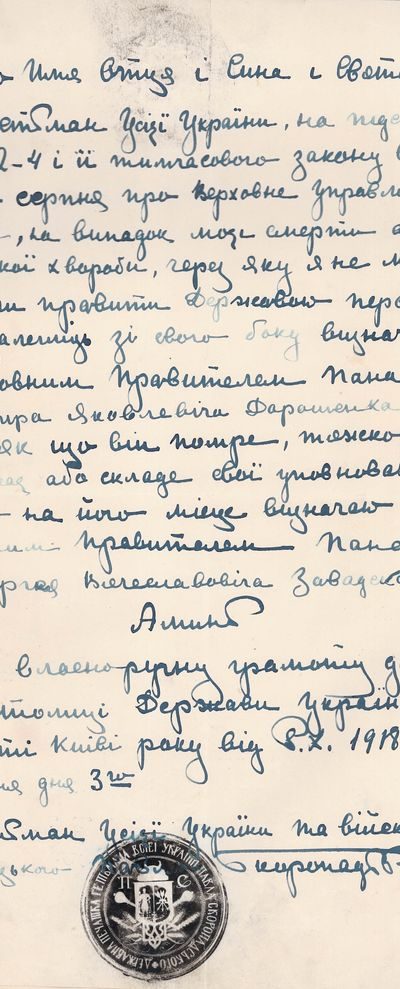 Имя Вітця і Сина і Свято
Гетьман Усієї України, на підс
2-4 і її тимчасового закону
серпня про Верховне Управл
, на випадок моєї смерти а
кої хвороби, через яку я не м
ти правити Державою пере
належить зі свого боку визнач
овним Правителем Пана
тра Яковлевіча Дарошенка
як що він помре, тяжко
або складе свої уповнова
на його місце визначаю
ним Правителем Пана
ргея Вячеславовіча Завадск
Аминь
власно-ручну грамоту д
столиці Держави Україн
ті Київі року від Р.Х. 1918
ня дня 3го
тьман Усієї України та війск
цького Павл Скоропадс
ДЕРЖАВНА ПЕЧАТКА ГЕТЬМАНА ВСІЕІ УКРАЇНИ ПАВЛА СКОРОПАДСЬКОГО
П С